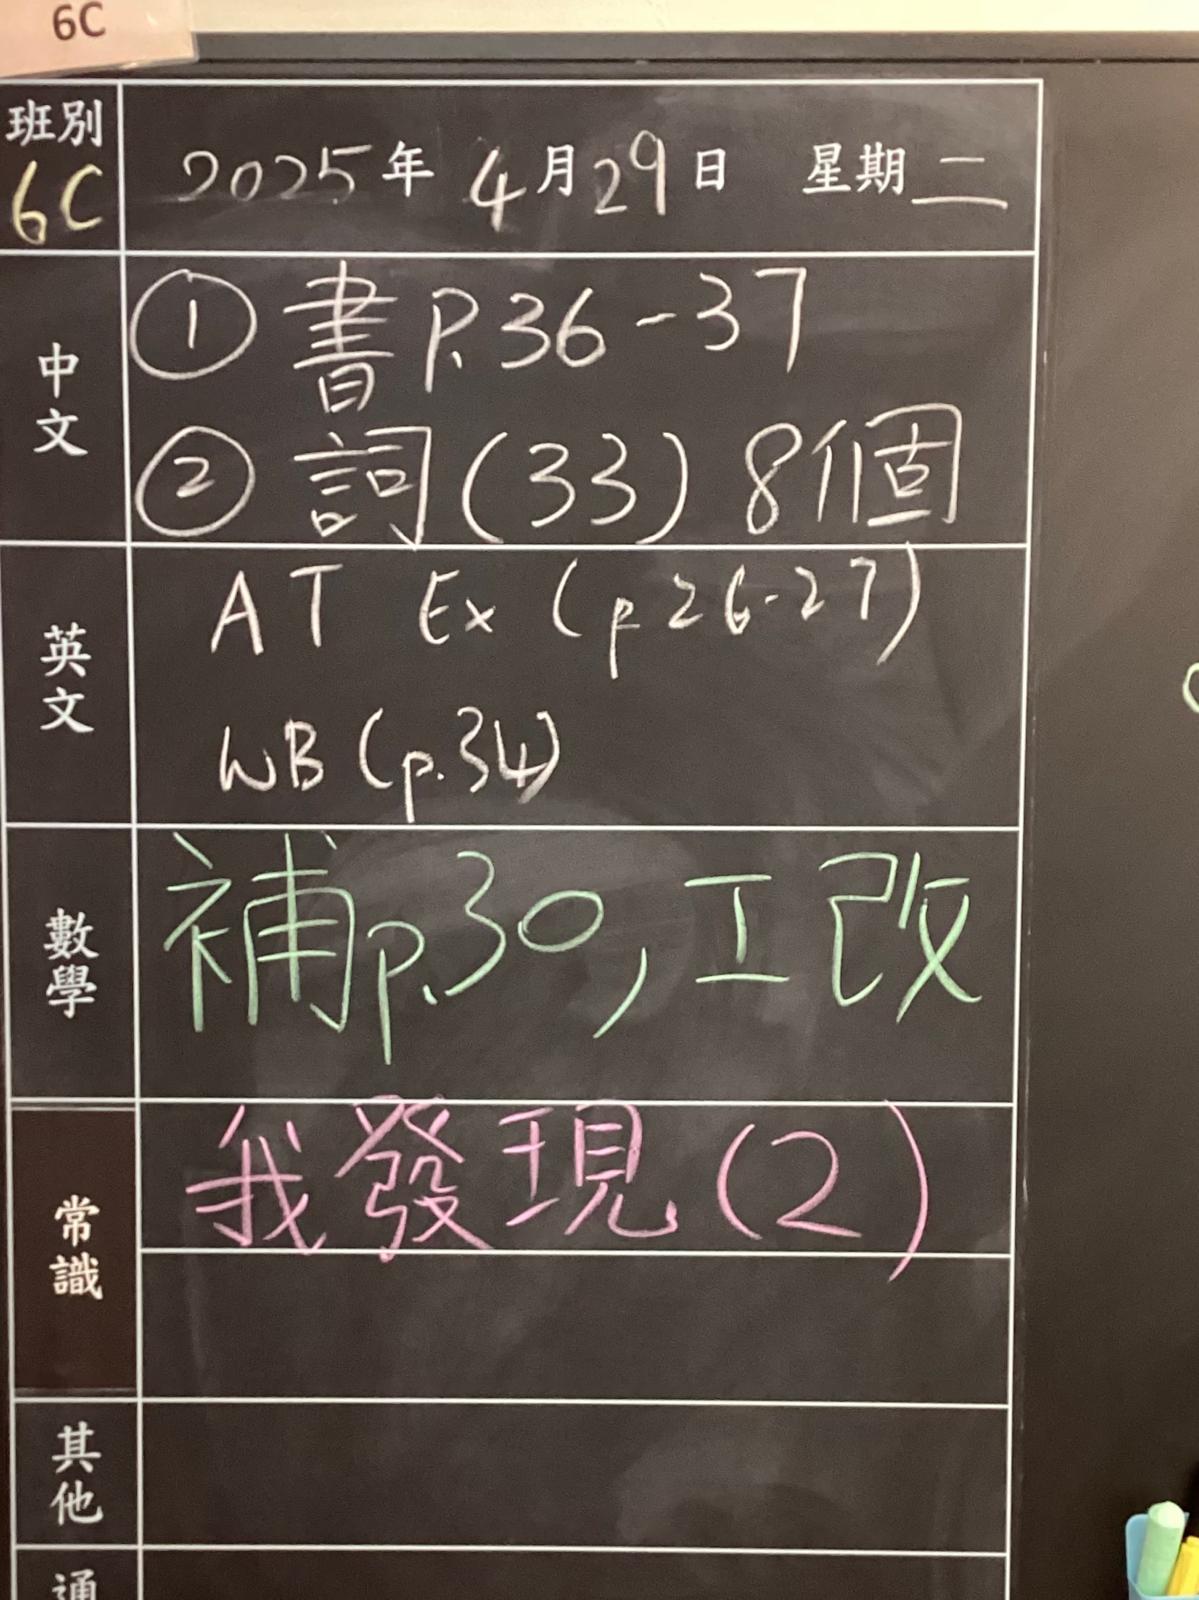 6C
班別
6C
2025年 4月29日 星期二
中文
① 書 P.36-37
② 詞(33) 8個
英文
AT Ex (p 26-27)
WB (p.34)
數學
補p.30, 工改
常識
我發現(2)
其他
通